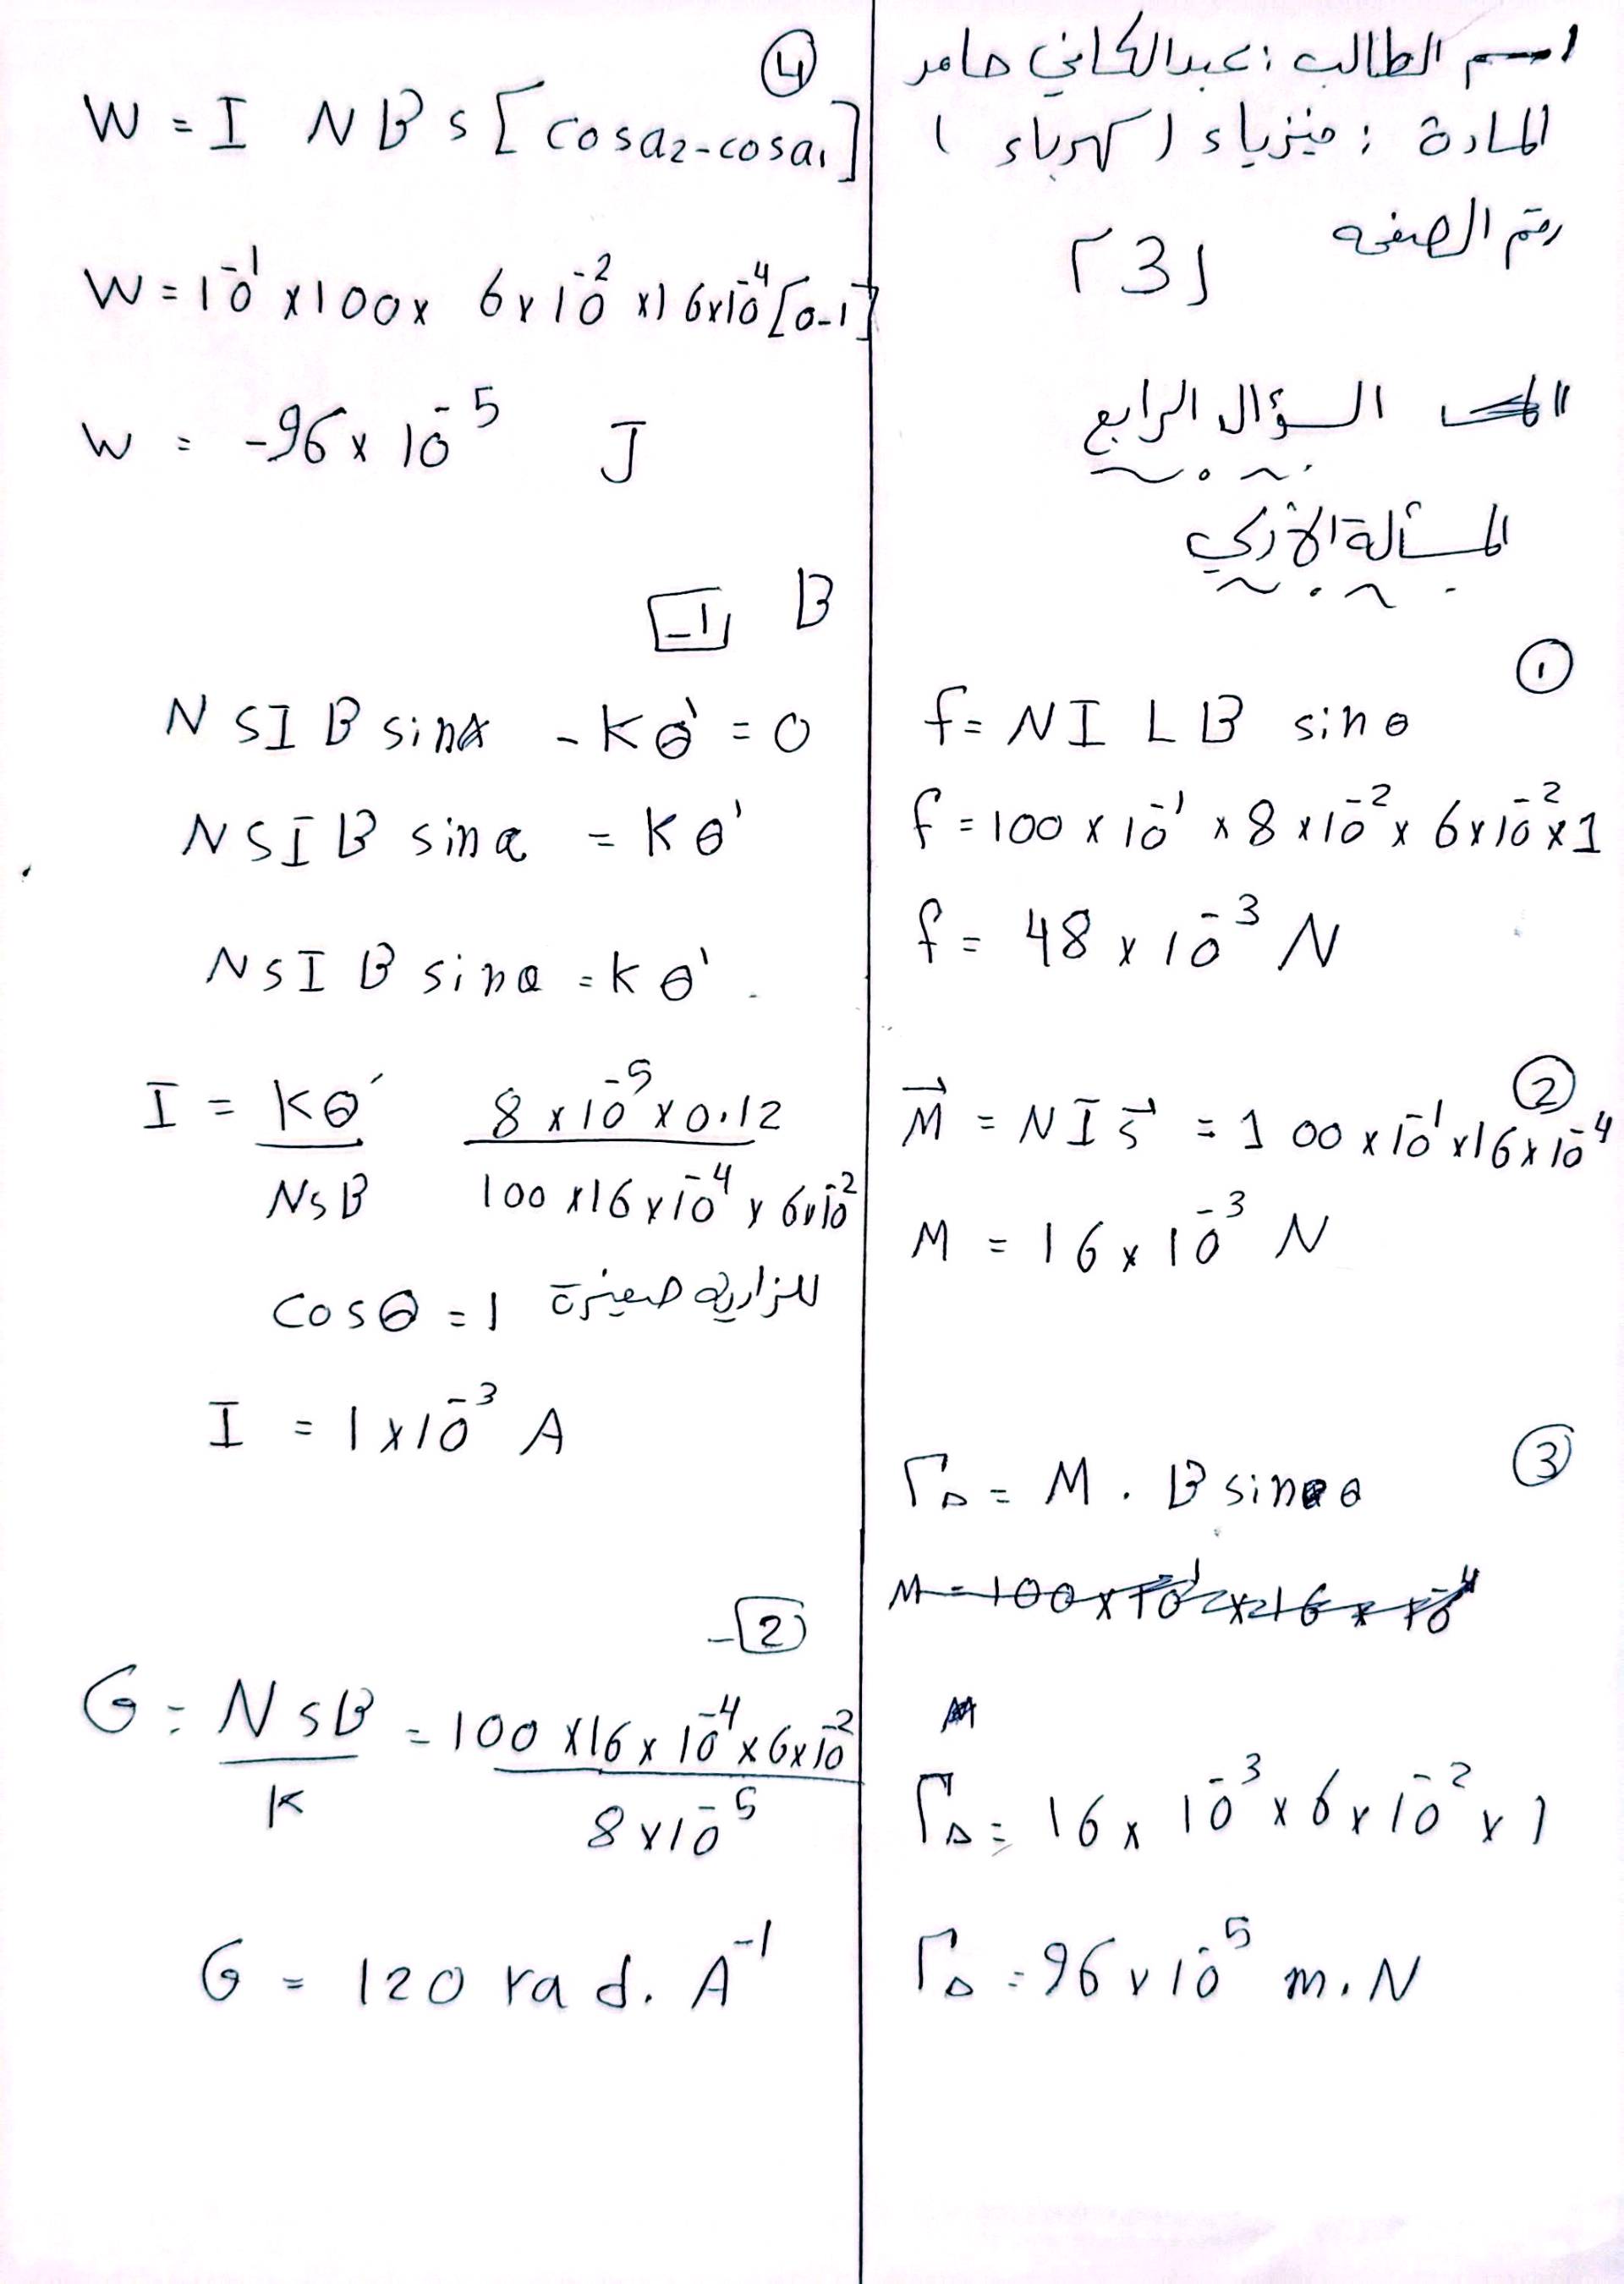 اسم الطالب : عبدالكافي حامد
المادة : فيزياء (كهرباء)
رقم الصفحه
[3]
السؤال الرابع
المسألة الأولى
①
f = N I L B sin θ
f = 100 × 10⁻¹ × 8 × 10⁻² × 6 × 10⁻² × 1
f = 48 × 10⁻³ N
②
M⃗ = N I S⃗ = 100 × 10⁻¹ × 16 × 10⁻⁴
M = 16 × 10⁻³ N
③
Γ△ = M . B sin θ
Γ△ = 16 × 10⁻³ × 6 × 10⁻² × 1
Γ△ = 96 × 10⁻⁵ m.N
④
W = I N B s [cos α₂ - cos α₁]
W = 10⁻¹ × 100 × 6 × 10⁻² × 16 × 10⁻⁴ [0-1]
W = -96 × 10⁻⁵ J
B
1-
N S I B sin α - K θ' = 0
N S I B sin α = K θ'
N S I B sin α = K θ'
I = Kθ' / NSB 8 × 10⁻⁵ × 0.12 / 100 × 16 × 10⁻⁴ × 6 × 10⁻²
cos θ = 1 للزاوية صغيرة
I = 1 × 10⁻³ A
2-
G = NSB / K = 100 × 16 × 10⁻⁴ × 6 × 10⁻² / 8 × 10⁻⁵
G = 120 rad. A⁻¹